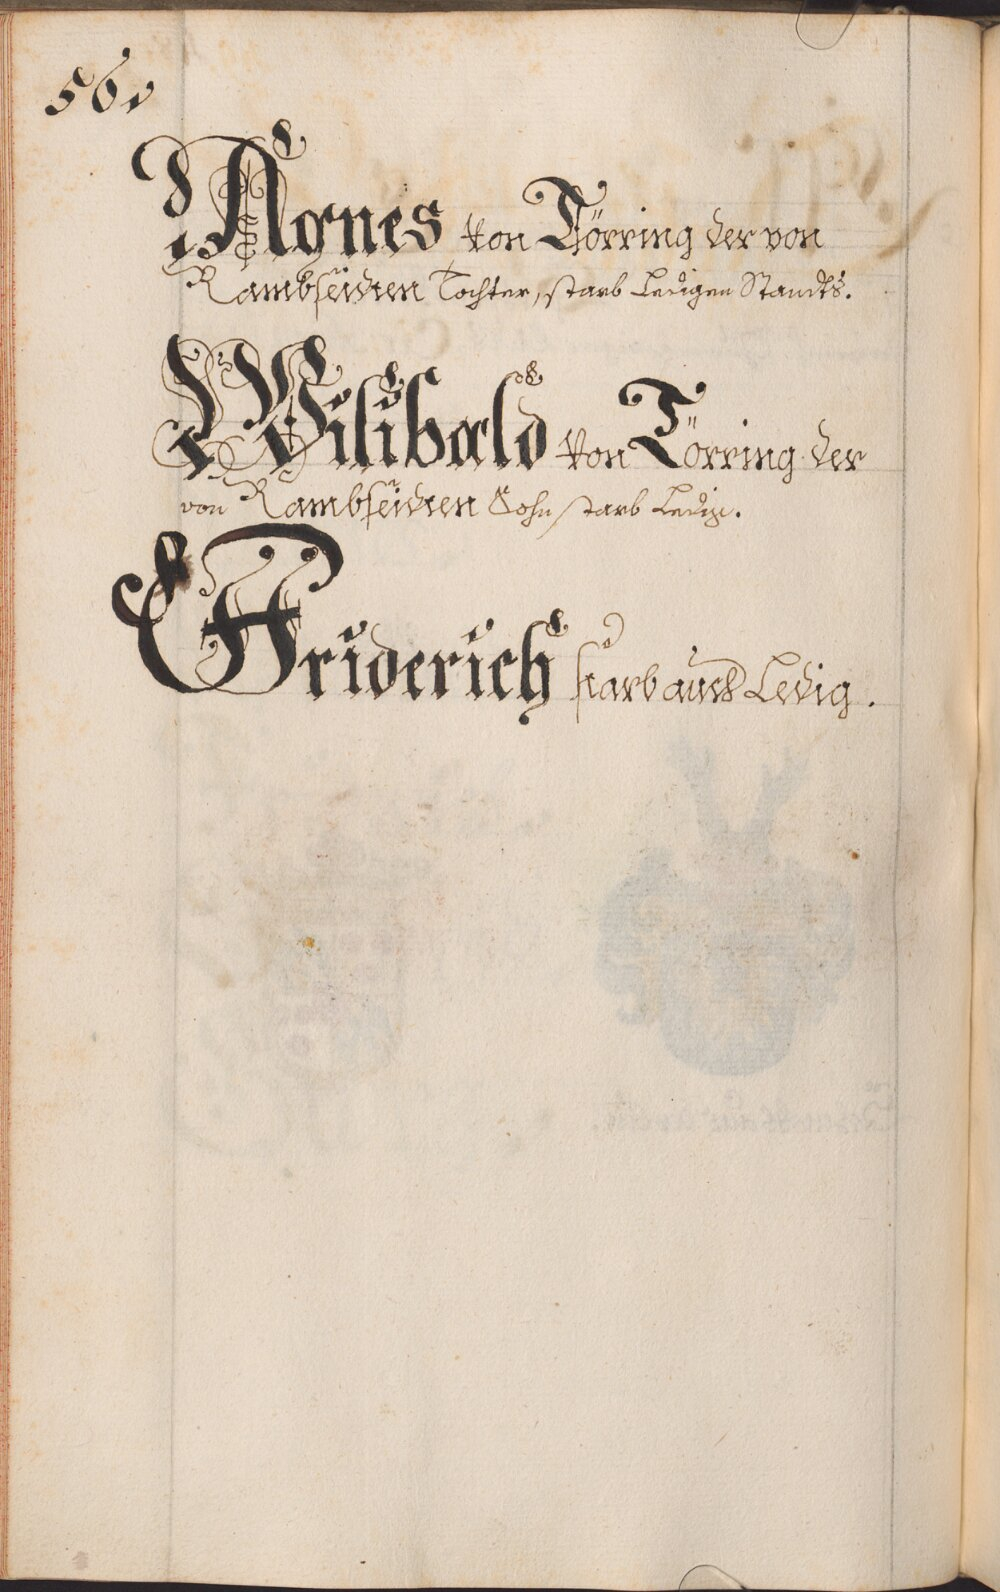 56.
Agnes von Törring der von
Rambseiden Tochter, starb Ledigen Standts.
Wilibald von Törring der
von Rambseiden Sohn starb Ledig.
Friderich starb auch Ledig.